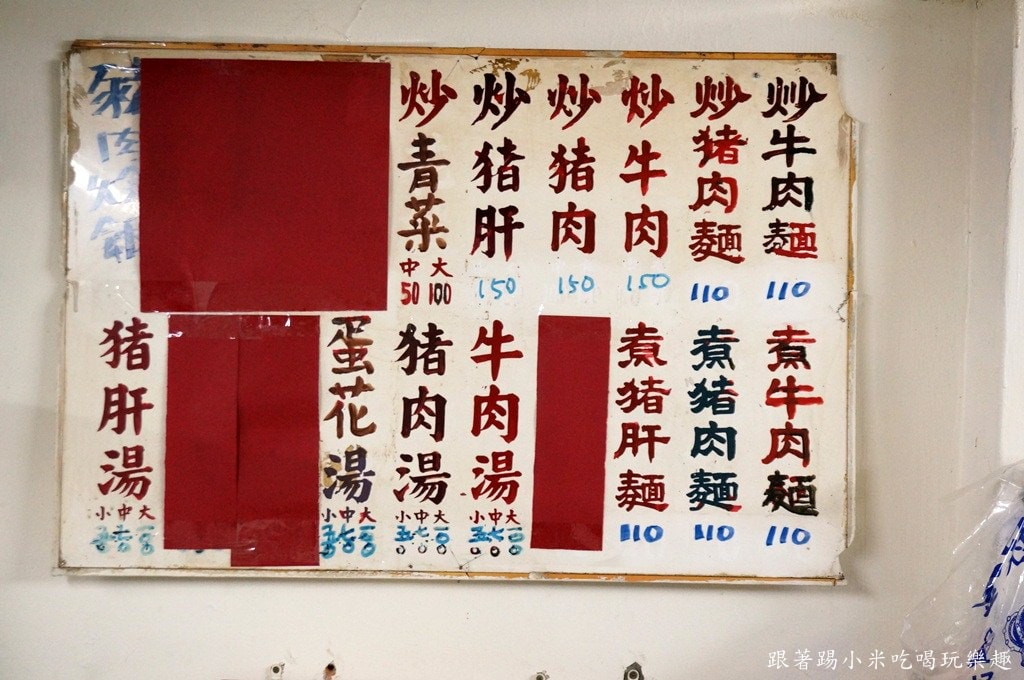 炒牛肉麵 110
炒猪肉麵 110
炒牛肉 150
炒猪肉 150
炒猪肝 150
炒青菜 中50 大100
煮牛肉麵 110
煮猪肉麵 110
煮猪肝麵 110
牛肉湯 小中大
猪肉湯 小中大
蛋花湯 小中大
猪肝湯 小中大
跟著踢小米吃喝玩樂趣